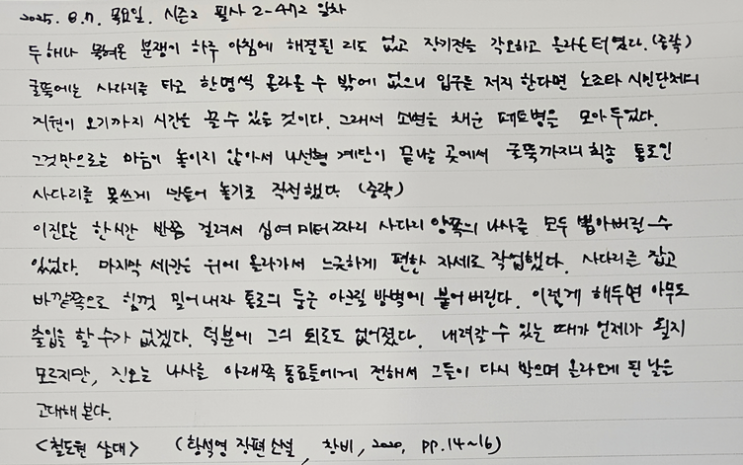 2025. 8.7. 목요일. 시즌2 필사 2-472 일차
두 해나 묵혀온 분쟁이 하루 아침에 해결될 리도 없고 장기전을 각오하고 올라온 터였다. (중략)
굴뚝에는 사다리를 타고 한명씩 올라올 수 밖에 없으니 입구를 저지 한다면 노조나 시민단체의
지원이 오기까지 시간을 끌 수 있을 것이다. 그래서 소변을 채운 페트병을 모아 두었다.
그것만으로는 마음이 놓이지 않아서 나선형 계단이 끝나는 곳에서 굴뚝까지의 최종 통로인
사다리를 못쓰게 만들어 놓기로 작정했다 (중략)
이진오는 한시간 반쯤 걸려서 십여 미터짜리 사다리 양쪽의 나사를 모두 뽑아버릴 수
있었다. 마지막 세칸은 위에 올라가서 느긋하게 편한 자세로 작업했다. 사다리를 잡고
바깥쪽으로 힘껏 밀어내자 통로의 둥근 아크릴 방벽에 붙어 버린다. 이렇게 해두면 아무도
출입을 할 수가 없겠다. 덕분에 그의 퇴로도 없어졌다. 내려갈 수 있는 때가 언제가 될지
모르지만, 진오는 나사를 아래쪽 동료들에게 전해서 그들이 다시 박으며 올라오게 될 날을
고대해 본다.
<철도원 삼대> (황석영 장편소설, 창비, 2020, pp.14~16)